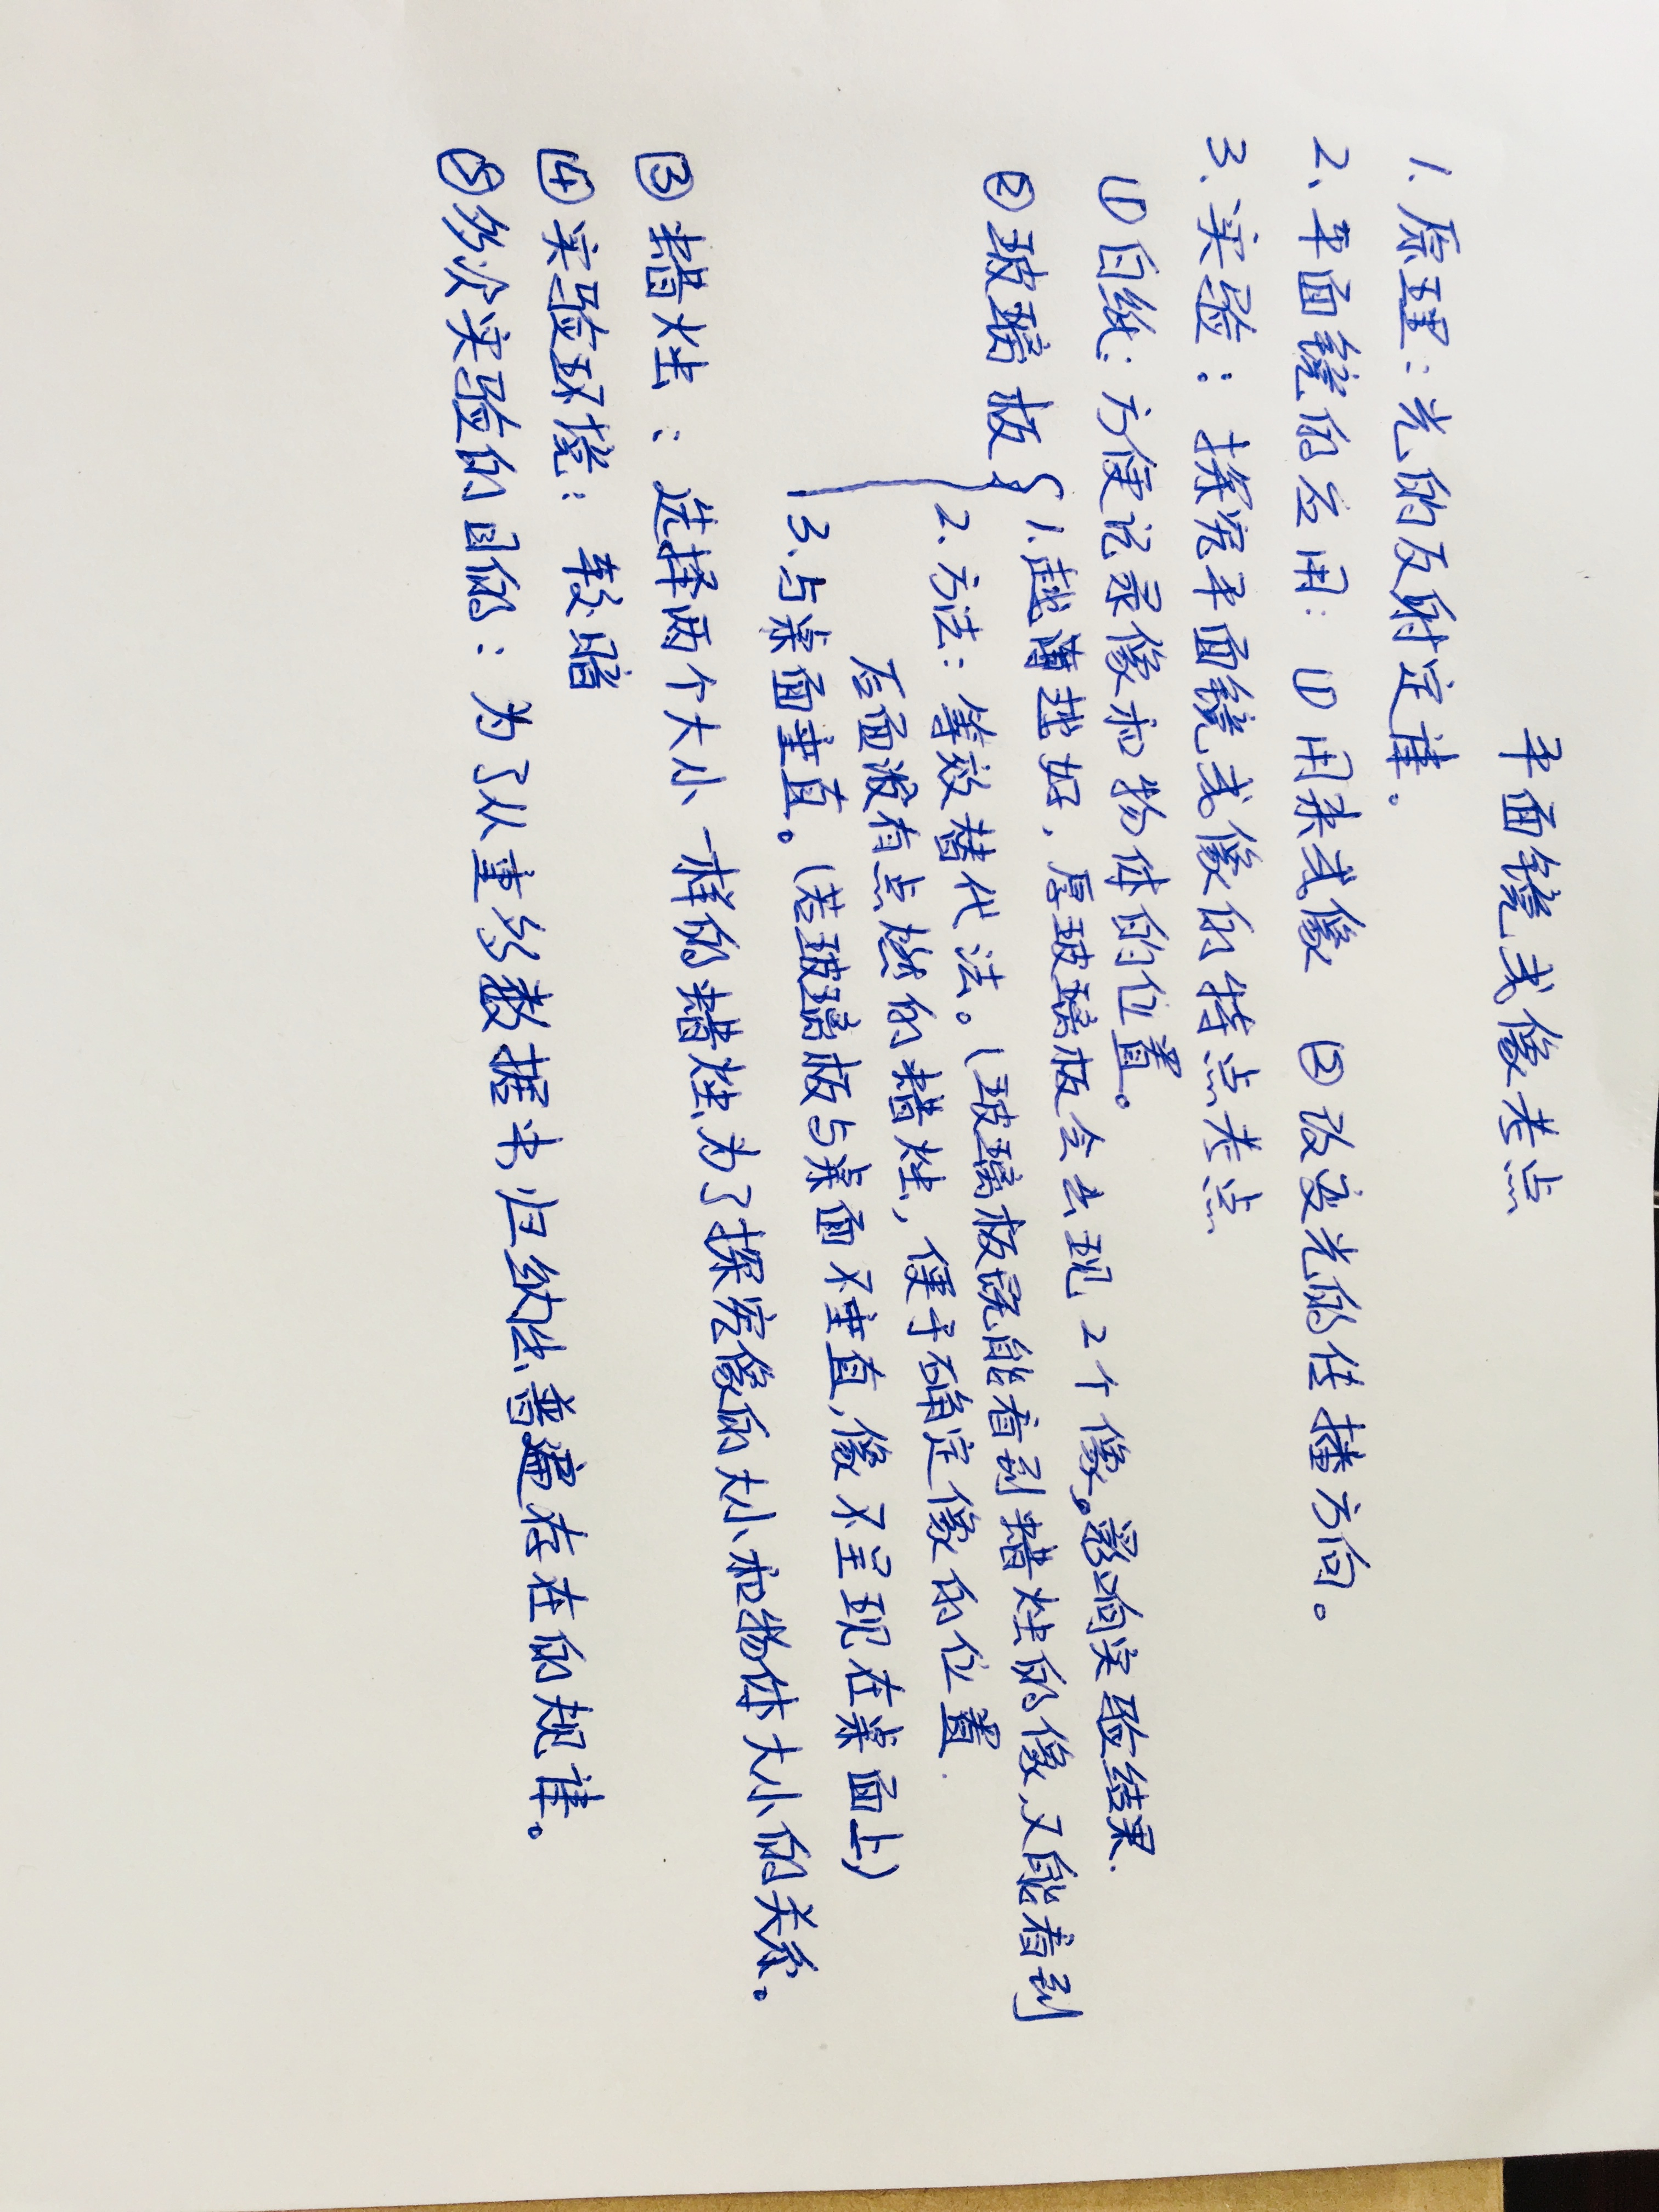 平面镜成像考点
1.原理:光的反射定律。
2、平面镜的应用:①用来成像 ②改变光的传播方向。
3、实验:探究平面镜成像的特点考点
①白纸:方便记录像和物体的位置。
②玻璃板{1.越薄越好,厚玻璃板会出现2个像。影响实验结果.
2.方法:等效替代法。(玻璃板既能看到蜡烛的像,又能看到
后面没有点燃的蜡烛,便于确定像的位置.
3、与桌面垂直。(若玻璃板与桌面不垂直,像不呈现在桌面上)
③蜡烛:选择两个大小一样的蜡烛,为了探究像的大小和物体大小的关系。
④实验环境:较暗
⑤多次实验的目的:为了从更多数据中,归纳出普遍存在的规律。